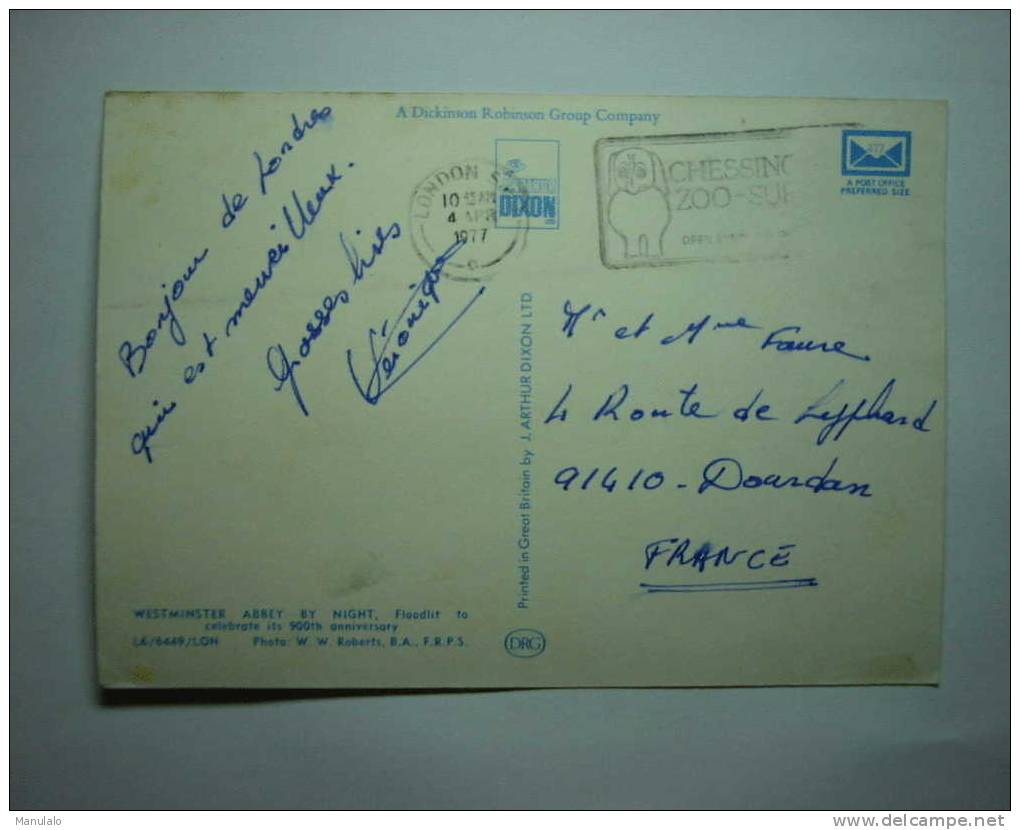 A Dickinson Robinson Group Company
Bonjour de Londres
qui est merveilleux.
Grosses bises
Véronique
LONDON
10 15 AM
4 APR
1977
DIXON
CHESSING
ZOO-SUR
OPEN
A POST OFFICE
PREFERRED SIZE
Mr et Mme Faure
4 Route de Lyphard
91410 - Dourdan
FRANCE
Printed in Great Britain by J. ARTHUR DIXON LTD.
WESTMINSTER ABBEY BY NIGHT, Floodlit to
celebrate its 900th anniversary
L6/6449/LON Photo: W. W. Roberts, B.A., F.R.P.S.
DRG
Manulalo
www.delcampe.net